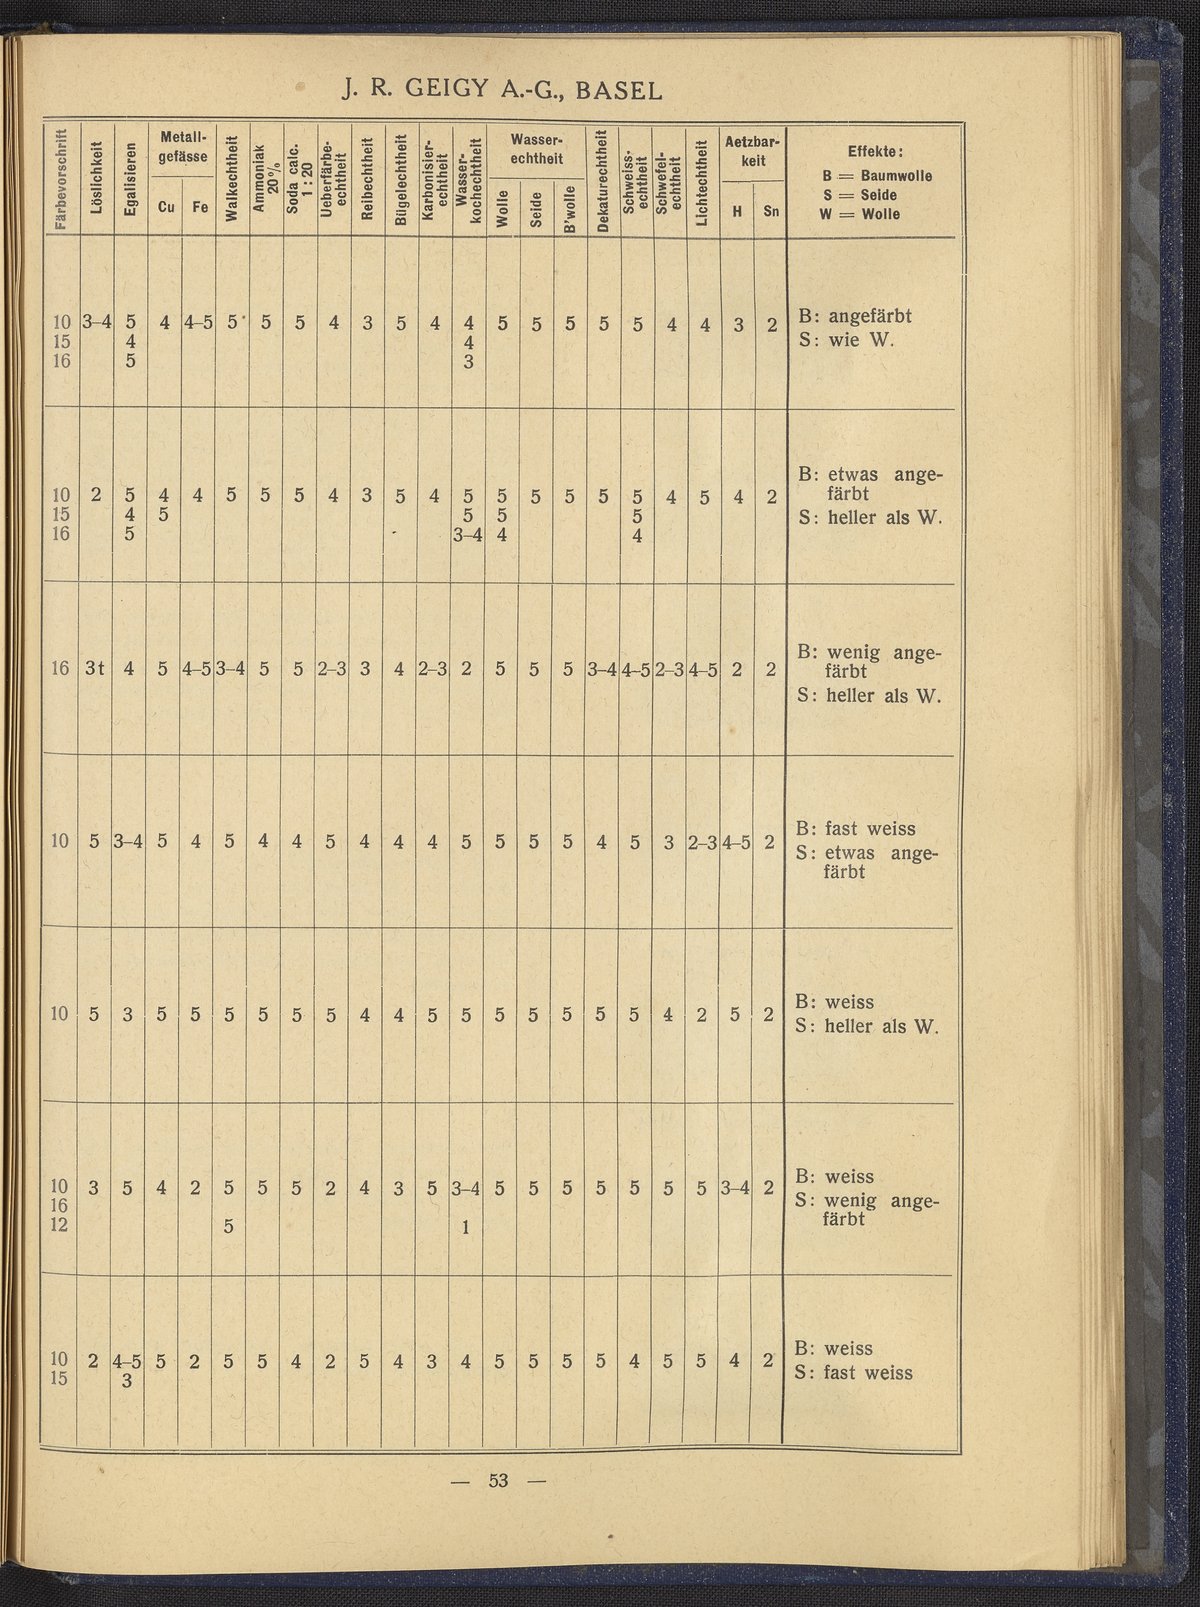 J. R. GEIGY A.-G., BASEL
Färbevorschrift
Löslichkeit
Egalisieren
Metall-
gefässe
Cu Fe
Walkechtheit
Ammoniak
20%
Soda calc.
1 : 20
Ueberfärbe-
echtheit
Reibechtheit
Bügelechtheit
Karbonisier-
echtheit
Wasser-
kochechtheit
Wasser-
echtheit
Wolle
Seide
B'wolle
Dekaturechtheit
Schweiss-
echtheit
Schwefel-
echtheit
Lichtechtheit
Aetzbar-
keit
H Sn
Effekte:
B = Baumwolle
S = Seide
W = Wolle
10 3–4 5 4 4–5 5 5 5 4 3 5 4 4 5 5 5 5 5 4 4 3 2 B: angefärbt
15 4 4 S: wie W.
16 5 3
10 2 5 4 4 5 5 5 4 3 5 4 5 5 5 5 5 5 4 5 4 2 B: etwas ange-
färbt
15 4 5 5 5 5 S: heller als W.
16 5 3–4 4 4
16 3t 4 5 4–5 3–4 5 5 2–3 3 4 2–3 2 5 5 5 3–4 4–5 2–3 4–5 2 2 B: wenig ange-
färbt
S: heller als W.
10 5 3–4 5 4 5 4 4 5 4 4 4 5 5 5 5 4 5 3 2–3 4–5 2 B: fast weiss
S: etwas ange-
färbt
10 5 3 5 5 5 5 5 5 4 4 5 5 5 5 5 5 5 4 2 5 2 B: weiss
S: heller als W.
10 3 5 4 2 5 5 5 2 4 3 5 3–4 5 5 5 5 5 5 5 3–4 2 B: weiss
16 S: wenig ange-
färbt
12 5 1
10 2 4–5 5 2 5 5 4 2 5 4 3 4 5 5 5 5 4 5 5 4 2 B: weiss
15 3 S: fast weiss
— 53 —